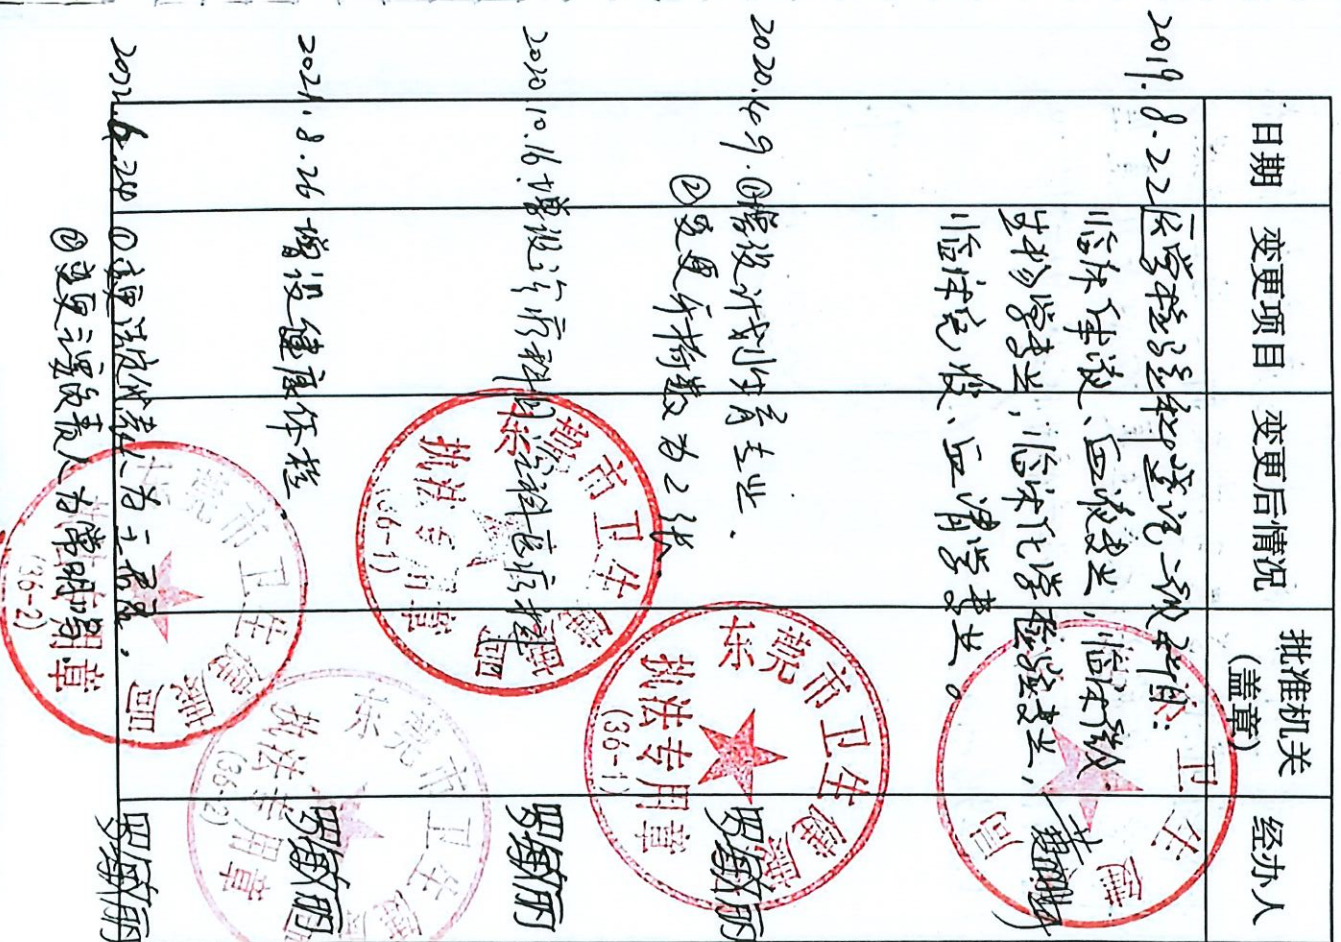 日期 变更项目 变更后情况 批准机关 经办人
(盖章)
2019.8.22 医学检验科 一级科目:
临床体液、血液专业,临床
生物学专业,临床化学检验专业,
临床免疫、血清学专业。
卫生健 局
2020.4.9.①增设计划生育专业.
②变更牙椅数为2张.
东莞市卫生健康局
执法专用章
(36-1)
罗敏丽
2020.10.16.增设 医疗
东莞市卫生健康局
执法专用章
(36-1)
罗敏丽
2021.8.26 增设健康体检
东莞市卫生健康局
执法专用章
(36-2)
罗敏丽
①变更法定代表人为王
②变更主要负责人为常明
东莞市卫生健康局
执法专用章
(36-2)
罗敏丽